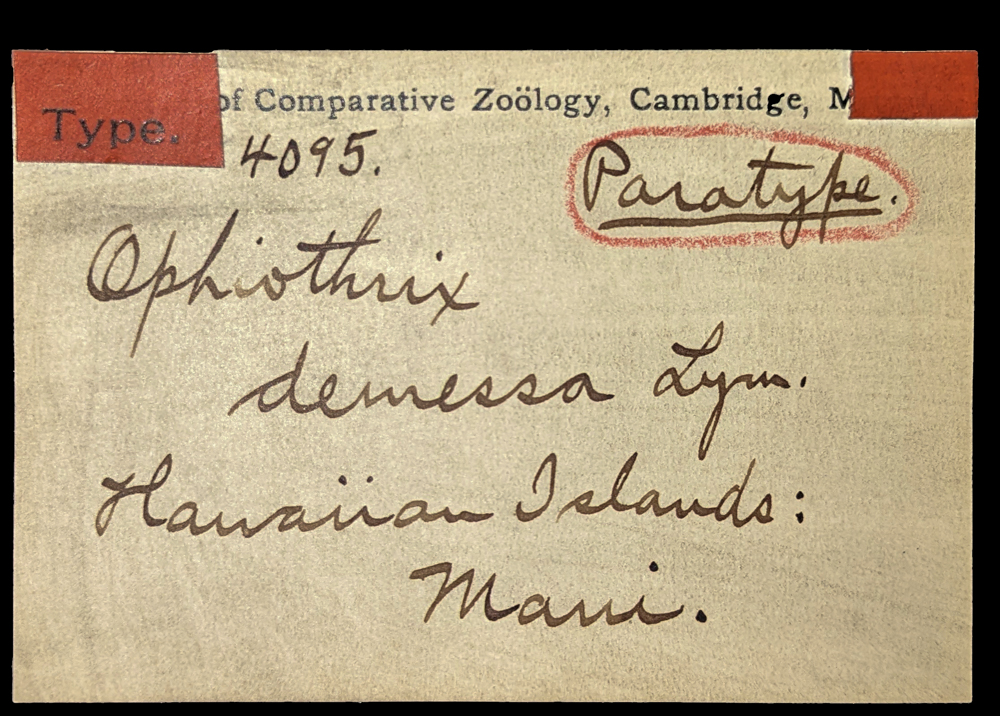 Type. of Comparative Zoölogy, Cambridge, M
4095. Paratype.
Ophiothrix
demessa Lym.
Hawaiian Islands:
Maui.